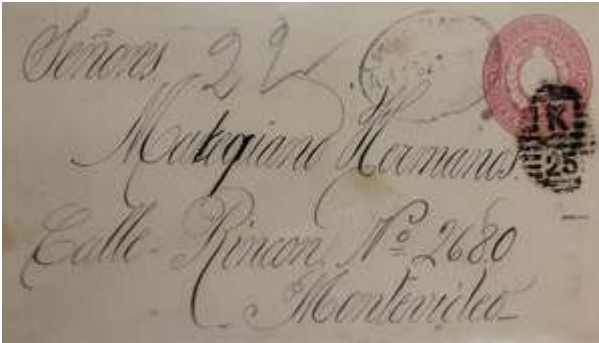 Señores 22
Hermanos.
Calle Rincon. Nº 2680
Montevideo
K
25